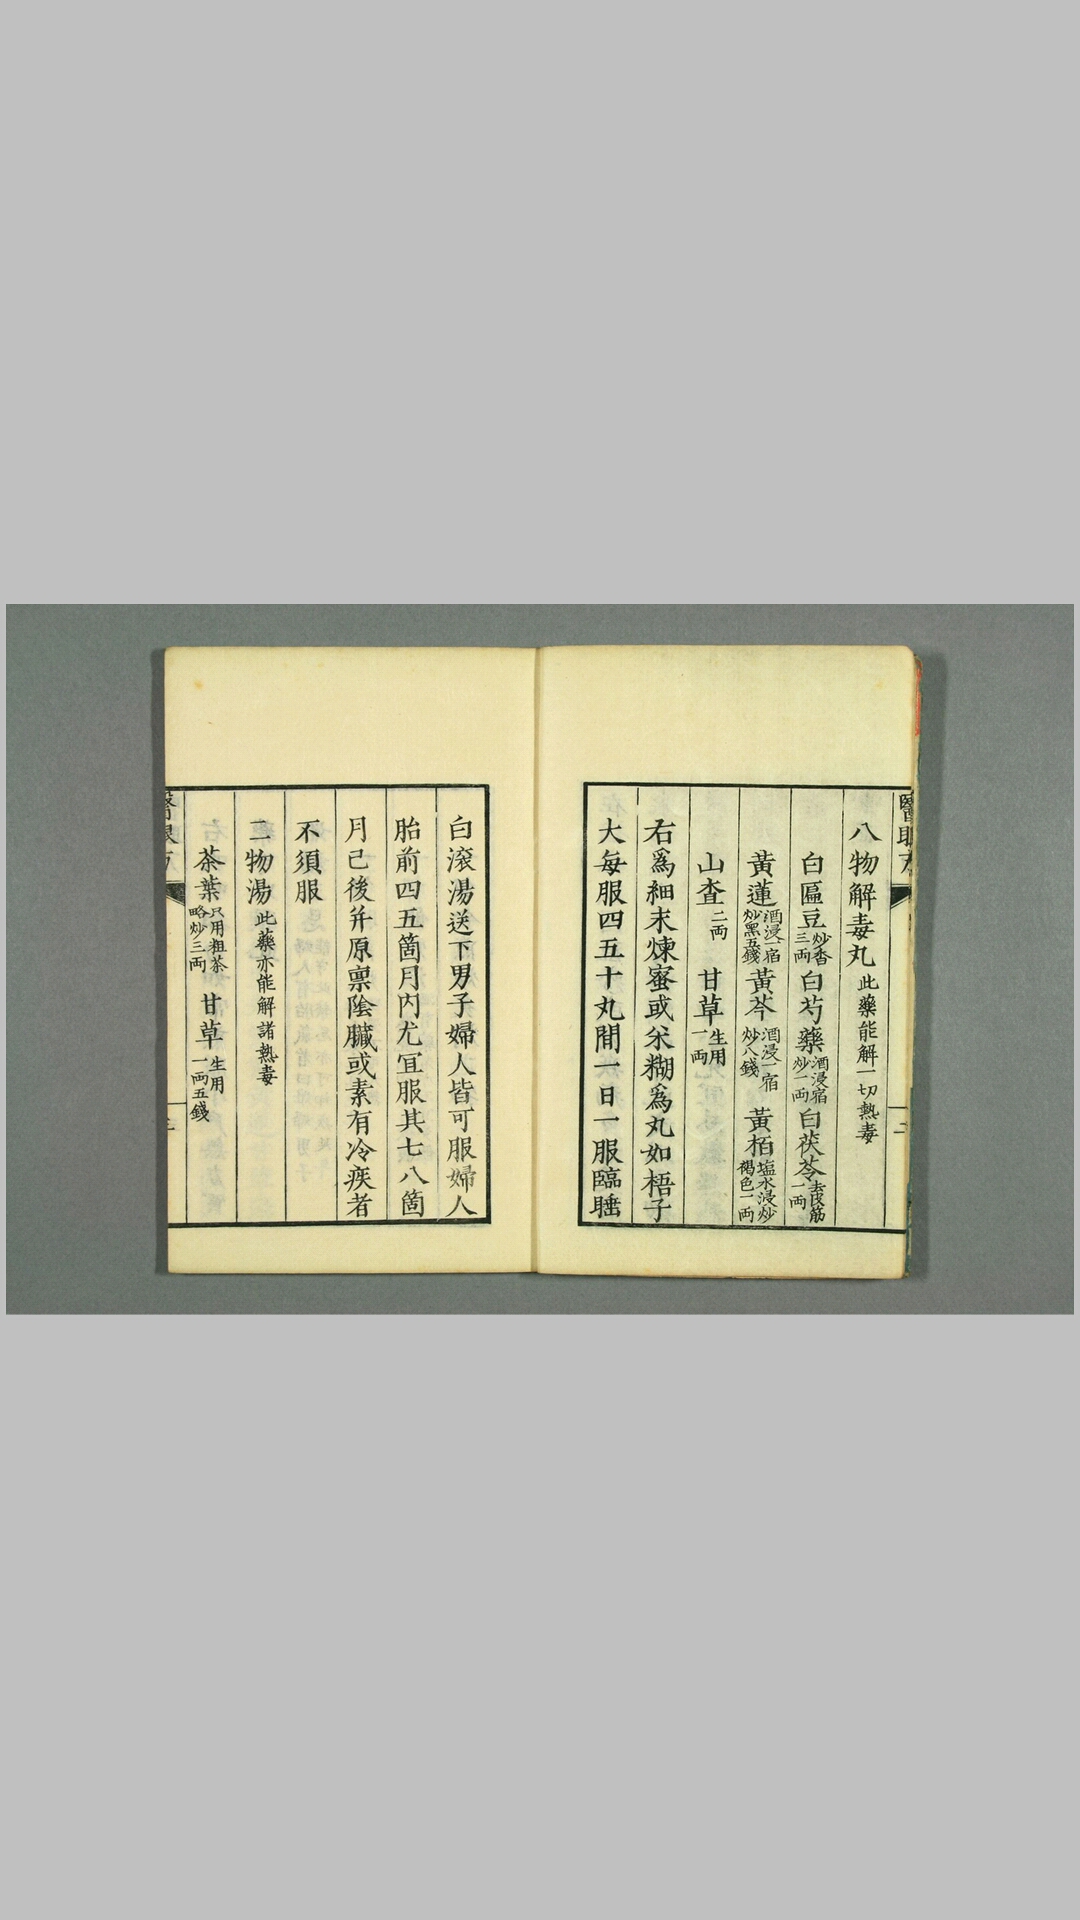 八物解毒丸 此藥能解一切熱毒
白匾豆 炒香三両 白芍藥 酒浸宿炒一両 白茯苓 去皮筋一両
黃蓮 酒浸一宿炒黑五錢 黃芩 酒浸一宿炒八錢 黃栢 塩水浸炒褐色一両
山查 二両 甘草 生用一両
右爲細末煉蜜或米糊爲丸如梧子
大每服四五十丸間一日一服臨睡
白滾湯送下男子婦人皆可服婦人
胎前四五箇月內尤宜服其七八箇
月已後并原稟陰臟或素有冷疾者
不須服
二物湯 此藥亦能解諸熱毒
茶葉 只用粗茶略炒三両 甘草 生用一両五錢